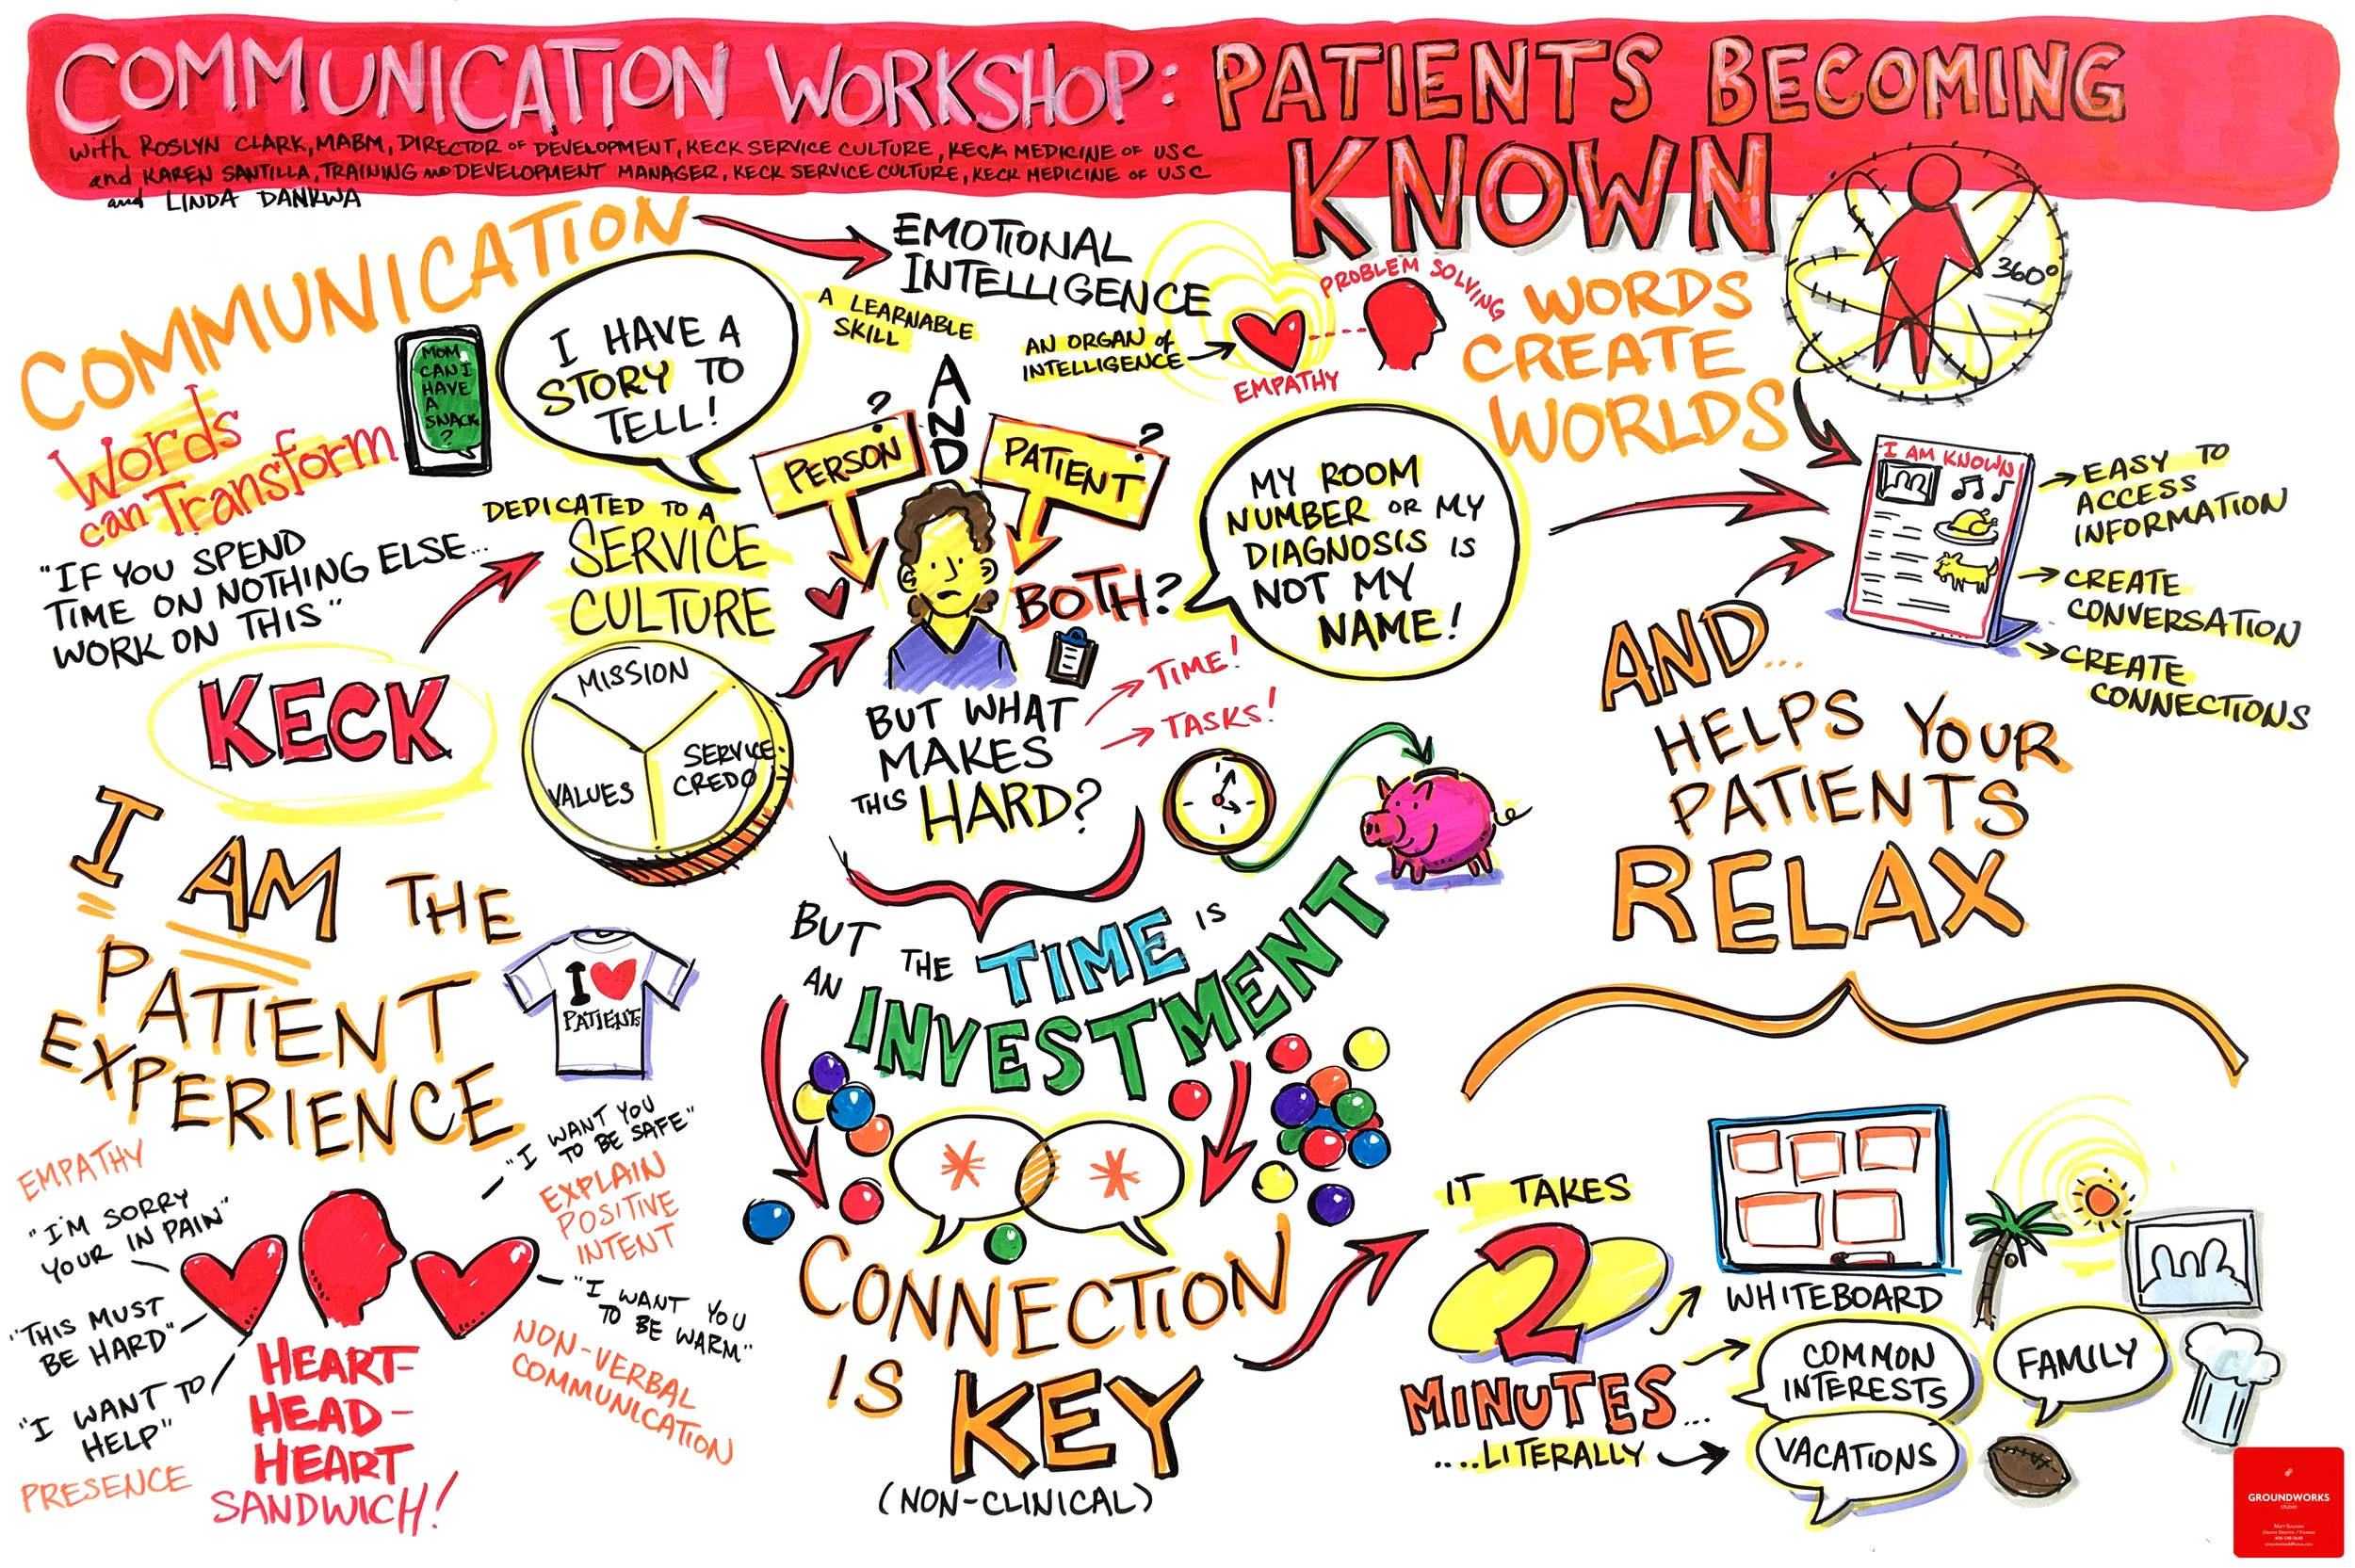 COMMUNICATION WORKSHOP: PATIENTS BECOMING
KNOWN
with ROSLYN CLARK, MABM, DIRECTOR OF DEVELOPMENT, KECK SERVICE CULTURE, KECK MEDICINE OF USC
and KAREN SANTILLA, TRAINING AND DEVELOPMENT MANAGER, KECK SERVICE CULTURE, KECK MEDICINE OF USC
and LINDA DANKWA
COMMUNICATION
Words
can Transform
MOM
CAN I
HAVE
A
SNACK
?
"IF YOU SPEND
TIME ON NOTHING ELSE...
WORK ON THIS"
I HAVE A
STORY TO
TELL!
EMOTIONAL
INTELLIGENCE
A LEARNABLE
SKILL
AN ORGAN of
INTELLIGENCE
EMPATHY
PROBLEM SOLVING
WORDS
CREATE
WORLDS
360°
KECK
DEDICATED TO A
SERVICE
CULTURE
MISSION
VALUES
SERVICE
CREDO
?
PERSON
AND
?
PATIENT
BOTH?
MY ROOM
NUMBER OR MY
DIAGNOSIS IS
NOT MY
NAME!
BUT WHAT
MAKES
THIS HARD?
TIME!
TASKS!
I AM KNOWN!
EASY TO
ACCESS
INFORMATION
CREATE
CONVERSATION
CREATE
CONNECTIONS
AND...
HELPS YOUR
PATIENTS
RELAX
I AM THE
PATIENT
EXPERIENCE
I
PATIENTS
EMPATHY
"I'M SORRY
YOUR IN PAIN"
"THIS MUST
BE HARD"
"I WANT TO
HELP"
PRESENCE
HEART-
HEAD-
HEART
SANDWICH!
"I WANT YOU
TO BE SAFE"
EXPLAIN
POSITIVE
INTENT
"I WANT YOU
TO BE WARM"
NON-VERBAL
COMMUNICATION
BUT THE TIME IS
AN INVESTMENT
CONNECTION
IS KEY
(NON-CLINICAL)
IT TAKES
2
MINUTES...
....LITERALLY
WHITEBOARD
COMMON
INTERESTS
FAMILY
VACATIONS
GROUNDWORKS
STUDIO